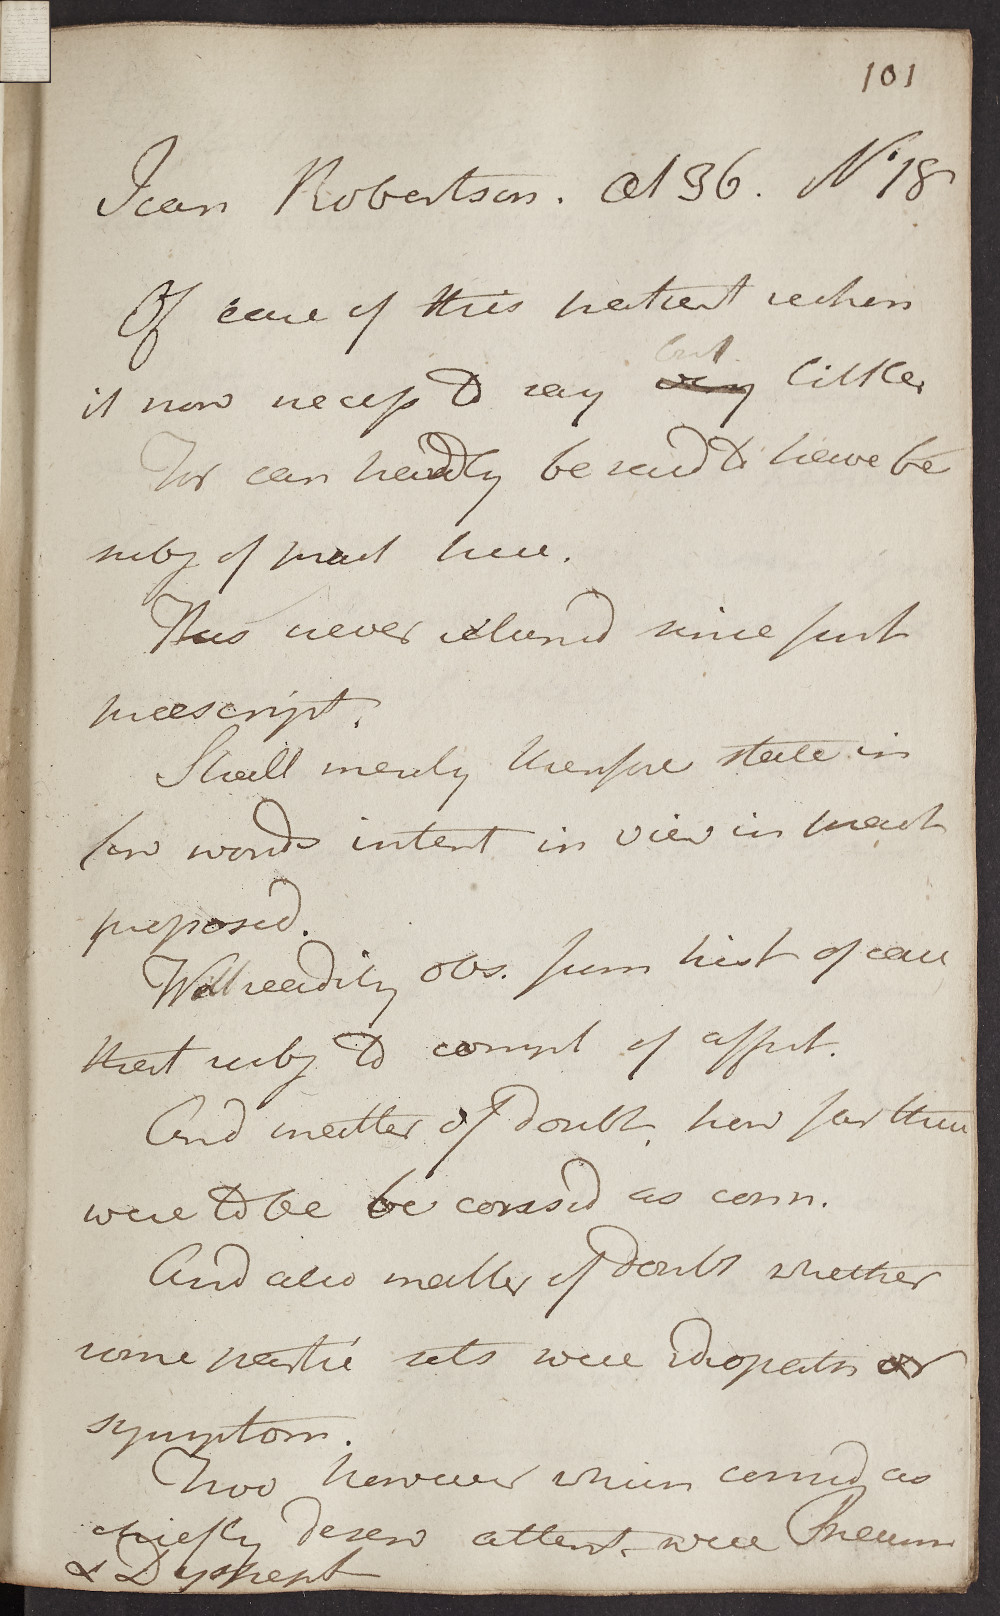 101
Jean Robertson. Æt 36. No 18
Of case of this patient reckon
it now necess to say very but little
For can hardly be said to have be
subj of pract here.
Has never returnd since first
præscript.
Shall merely therefore state in
few words intent in view in pract
proposed.
Will readily obs. from hist of case
that subj to compl of affect.
And matter of doubt, how far these
were to be be consid as conn.
And also matter of doubt whether
some partic sets were Idiopath or
symptom.
Two however which consid as
chiefly deserv attent. were Rheum
& Dyspept